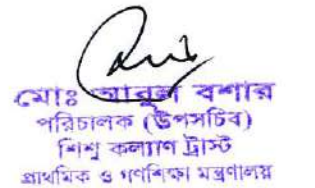 মোঃ আবুল বশার
পরিচালক (উপসচিব)
শিশু কল্যাণ ট্রাস্ট
প্রাথমিক ও গণশিক্ষা মন্ত্রণালয়